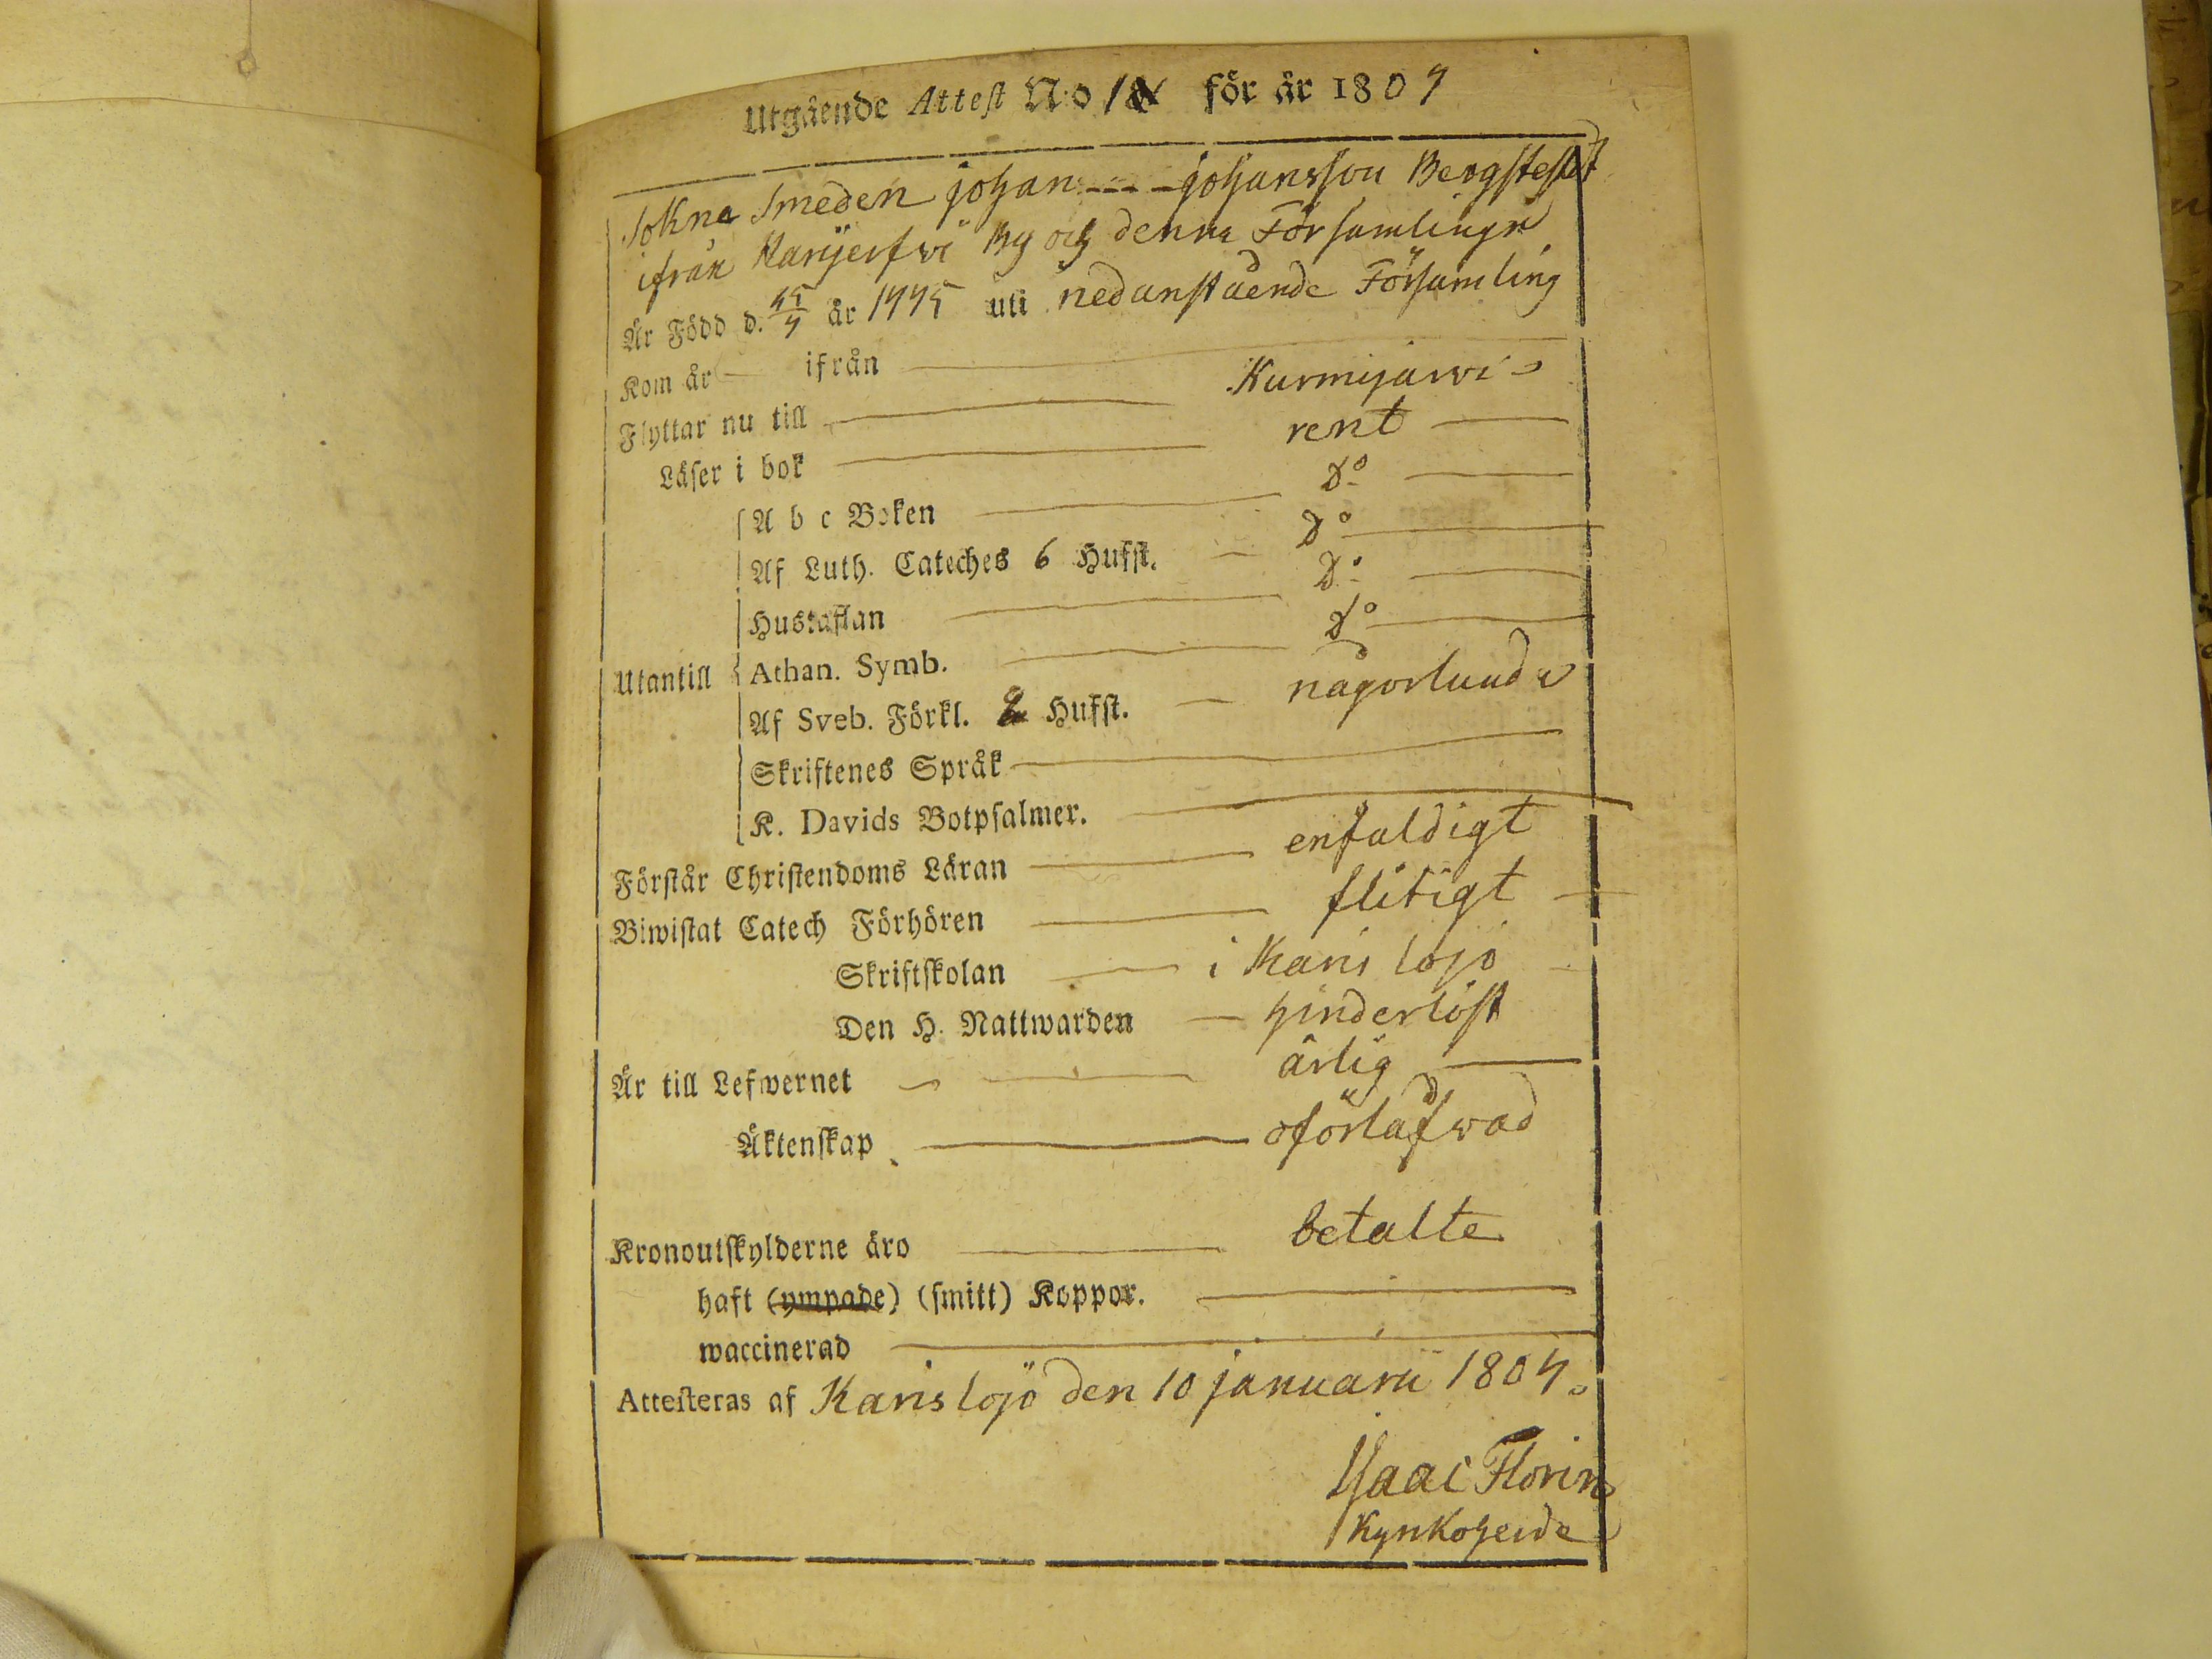 Utgående Attest N:o 18 för år 1807
Sokne Smeden johan - - - johansson Bergstedt
ifrån Karijerfvi By och denna Församlingn
Är Född d. år 1775 uti nedanstående Församling
Kom år — ifrån
Flyttar nu till Kurmijärvi
Läser i bok rent
A b c Boken Do
Af Luth. Cateches 6 Hufst. Do
Hustaflan Do
Utantill Athan. Symb. Do
Af Sveb. Förkl. 2 Hufst. någorlunda
Skriftenes Språk
K. Davids Botpsalmer.
Förstår Christendoms Läran enfaldigt
Biwistat Catech Förhören flitigt
Skriftskolan i Karis lojo
Den H. Nattwarden hinderlöst
Är till Lefwernet ärlig
Äktenskap oförlåfwad
Kronoutskylderne äro betalte
haft (ympade) (smitt) Koppor.
waccinerad
Attesteras af Karis lojo den 10 januarii 1807.
Isaac Florin
Kyrkoherde